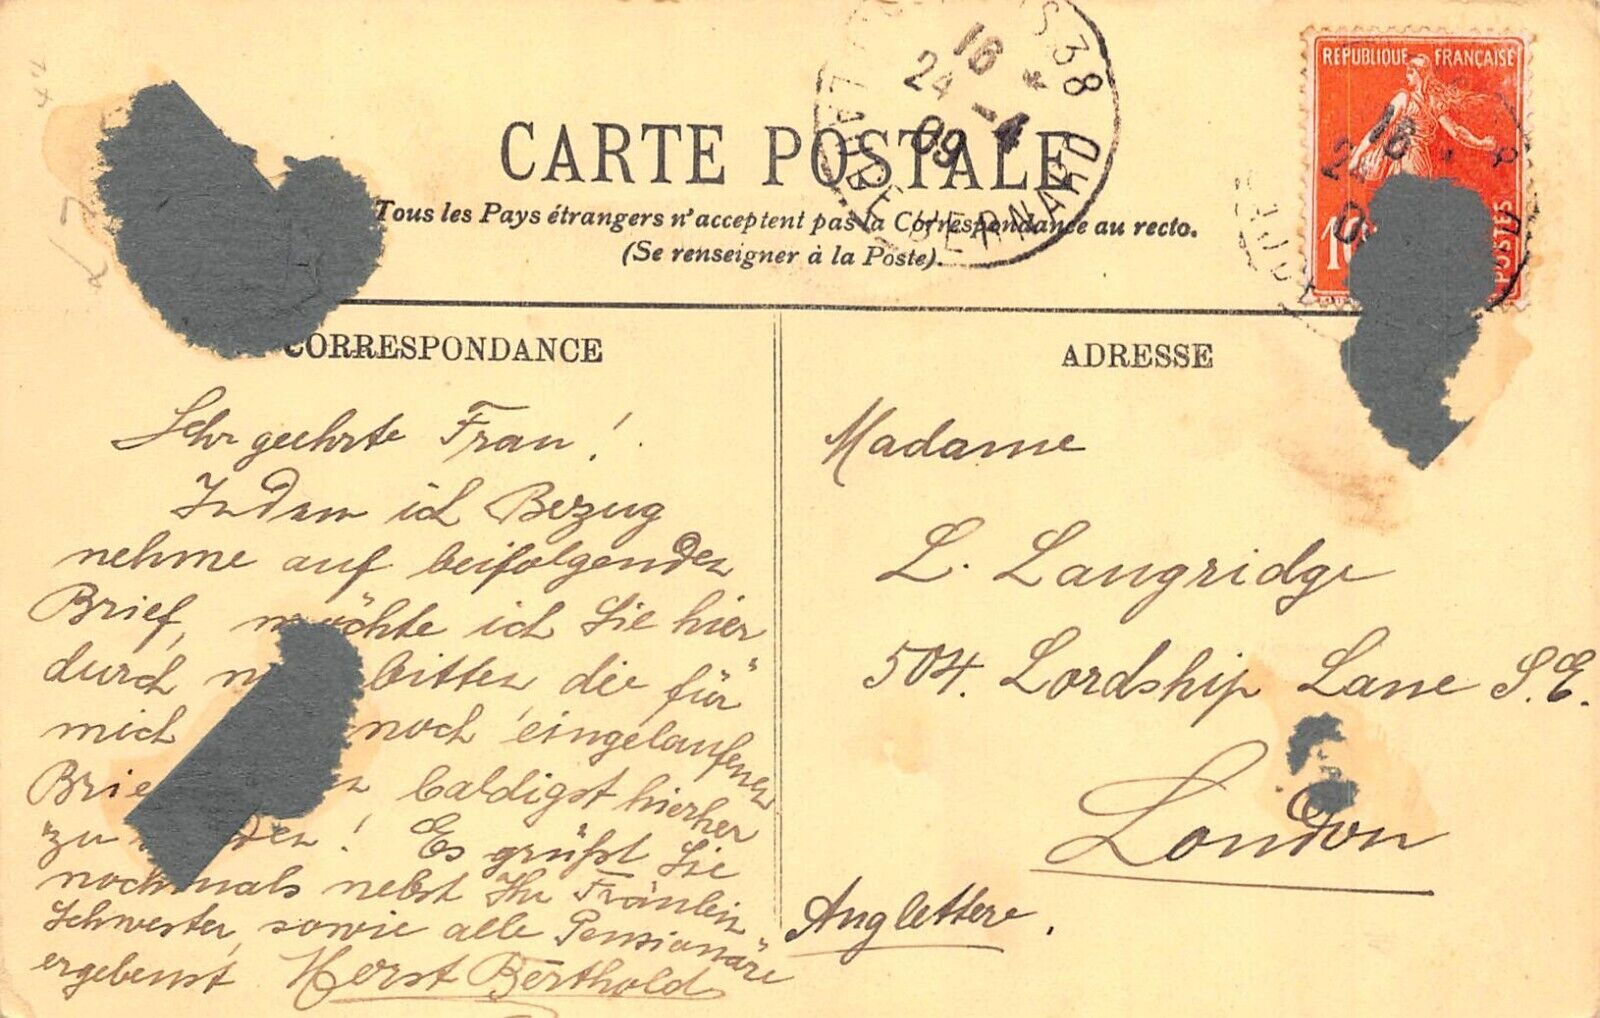 CARTE POSTALE
Tous les Pays étrangers n'acceptent pas la Correspondance au recto.
(Se renseigner à la Poste).
38
BERNARD
16
24 -4
09
REPUBLIQUE FRANÇAISE
16
24
10
POSTES
CORRESPONDANCE
Sehr geehrte Frau!
Indem ich Bezug
nehme auf beifolgenden
Brief, möchte ich Sie hier
durch bitten, die für
mich noch eingelaufenen
baldigst hierher
zu ! Es grüßt Sie
nochmals nebst Ihr Fräulein
Schwester, sowie alle Pensionäre
ergebenst Horst Berthold
ADRESSE
Madame
L. Langridge
504. Lordship Lane S.E.
London
Anglettere.